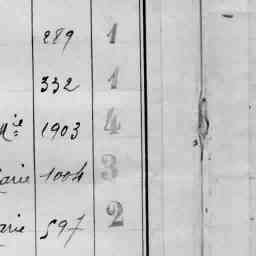 289 1
332 1
Mie 1903 4
arie 1004 3
arie 597 2